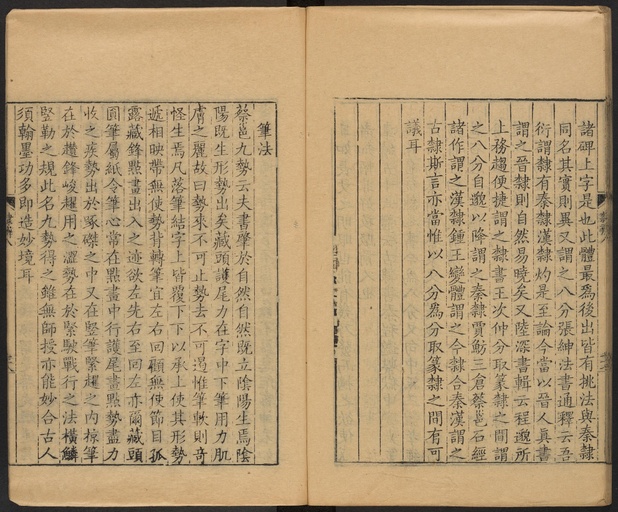 諸碑上字是也此體最爲後出皆有挑法與秦隸
同名其實則異又謂之八分張紳法書通釋云吾
衍謂隸有秦隸漢隸灼是至論今當以晉人眞書
謂之晉隸則自然易曉矣又陸深書輯云程邈所
上務趨便捷謂之隸書王次仲分取篆隸之間謂
之八分自邈以降謂之秦隸賈魴三倉蔡邕石經
諸作謂之漢隸鍾王變體謂之今隸合秦漢謂之
古隸斯言亦當惟以八分爲分取篆隸之間有可
議耳
筆法
蔡邕九勢云夫書肇於自然自然既立陰陽生焉陰
陽既生形勢出矣藏頭護尾力在字中下筆用力肌
膚之麗故曰勢來不可止勢去不可遏惟筆軟則奇
怪生焉凡落筆結字上皆覆下下以承上使其形勢
遞相映帶無使勢背轉筆宜左右回顧無使節目孤
露藏鋒點畫出入之迹欲左先右至回左亦爾藏頭
圓筆屬紙令筆心常在點畫中行護尾畫點勢盡力
收之疾勢出於啄磔之中又在竪筆緊趯之內掠筆
在於趲鋒峻趯用之澀勢在於緊駃戰行之法橫鱗
竪勒之規此名九勢得之雖無師授亦能妙合古人
須翰墨功多即造妙境耳